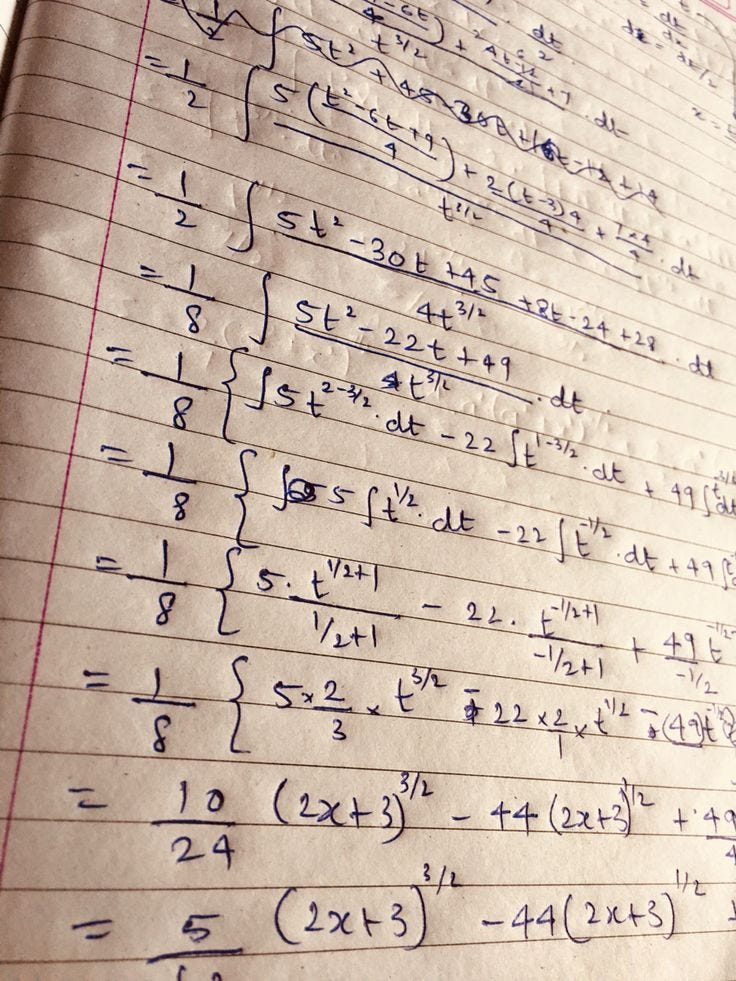 dt/2
= 1/2 ∫ 5t² + 45 - 30t
= 1/2 ∫ (5(t²-6t+9)/4 + 2(t-3)4/4 + 7×4/4)/t^3/2 · dt
= 1/2 ∫ (5t² - 30t + 45 + 8t - 24 + 28)/4t^3/2 · dt
= 1/8 ∫ (5t² - 22t + 49)/t^3/2 · dt
= 1/8 { ∫ 5t^2-3/2 · dt - 22 ∫ t^1-3/2 · dt + 49 ∫ t^-3/2 dt
= 1/8 { 5 ∫ t^1/2 · dt - 22 ∫ t^-1/2 · dt + 49 ∫
= 1/8 { 5 · t^1/2+1/(1/2+1) - 22 · t^-1/2+1/(-1/2+1) + 49 t^-1/2/(-1/2)
= 1/8 { 5×2/3 × t^3/2 - 22 × 2/1 × t^1/2 - (49) t
= 10/24 (2x+3)^3/2 - 44 (2x+3)^1/2 + 49
= 5 (2x+3)^3/2 - 44 (2x+3)^1/2